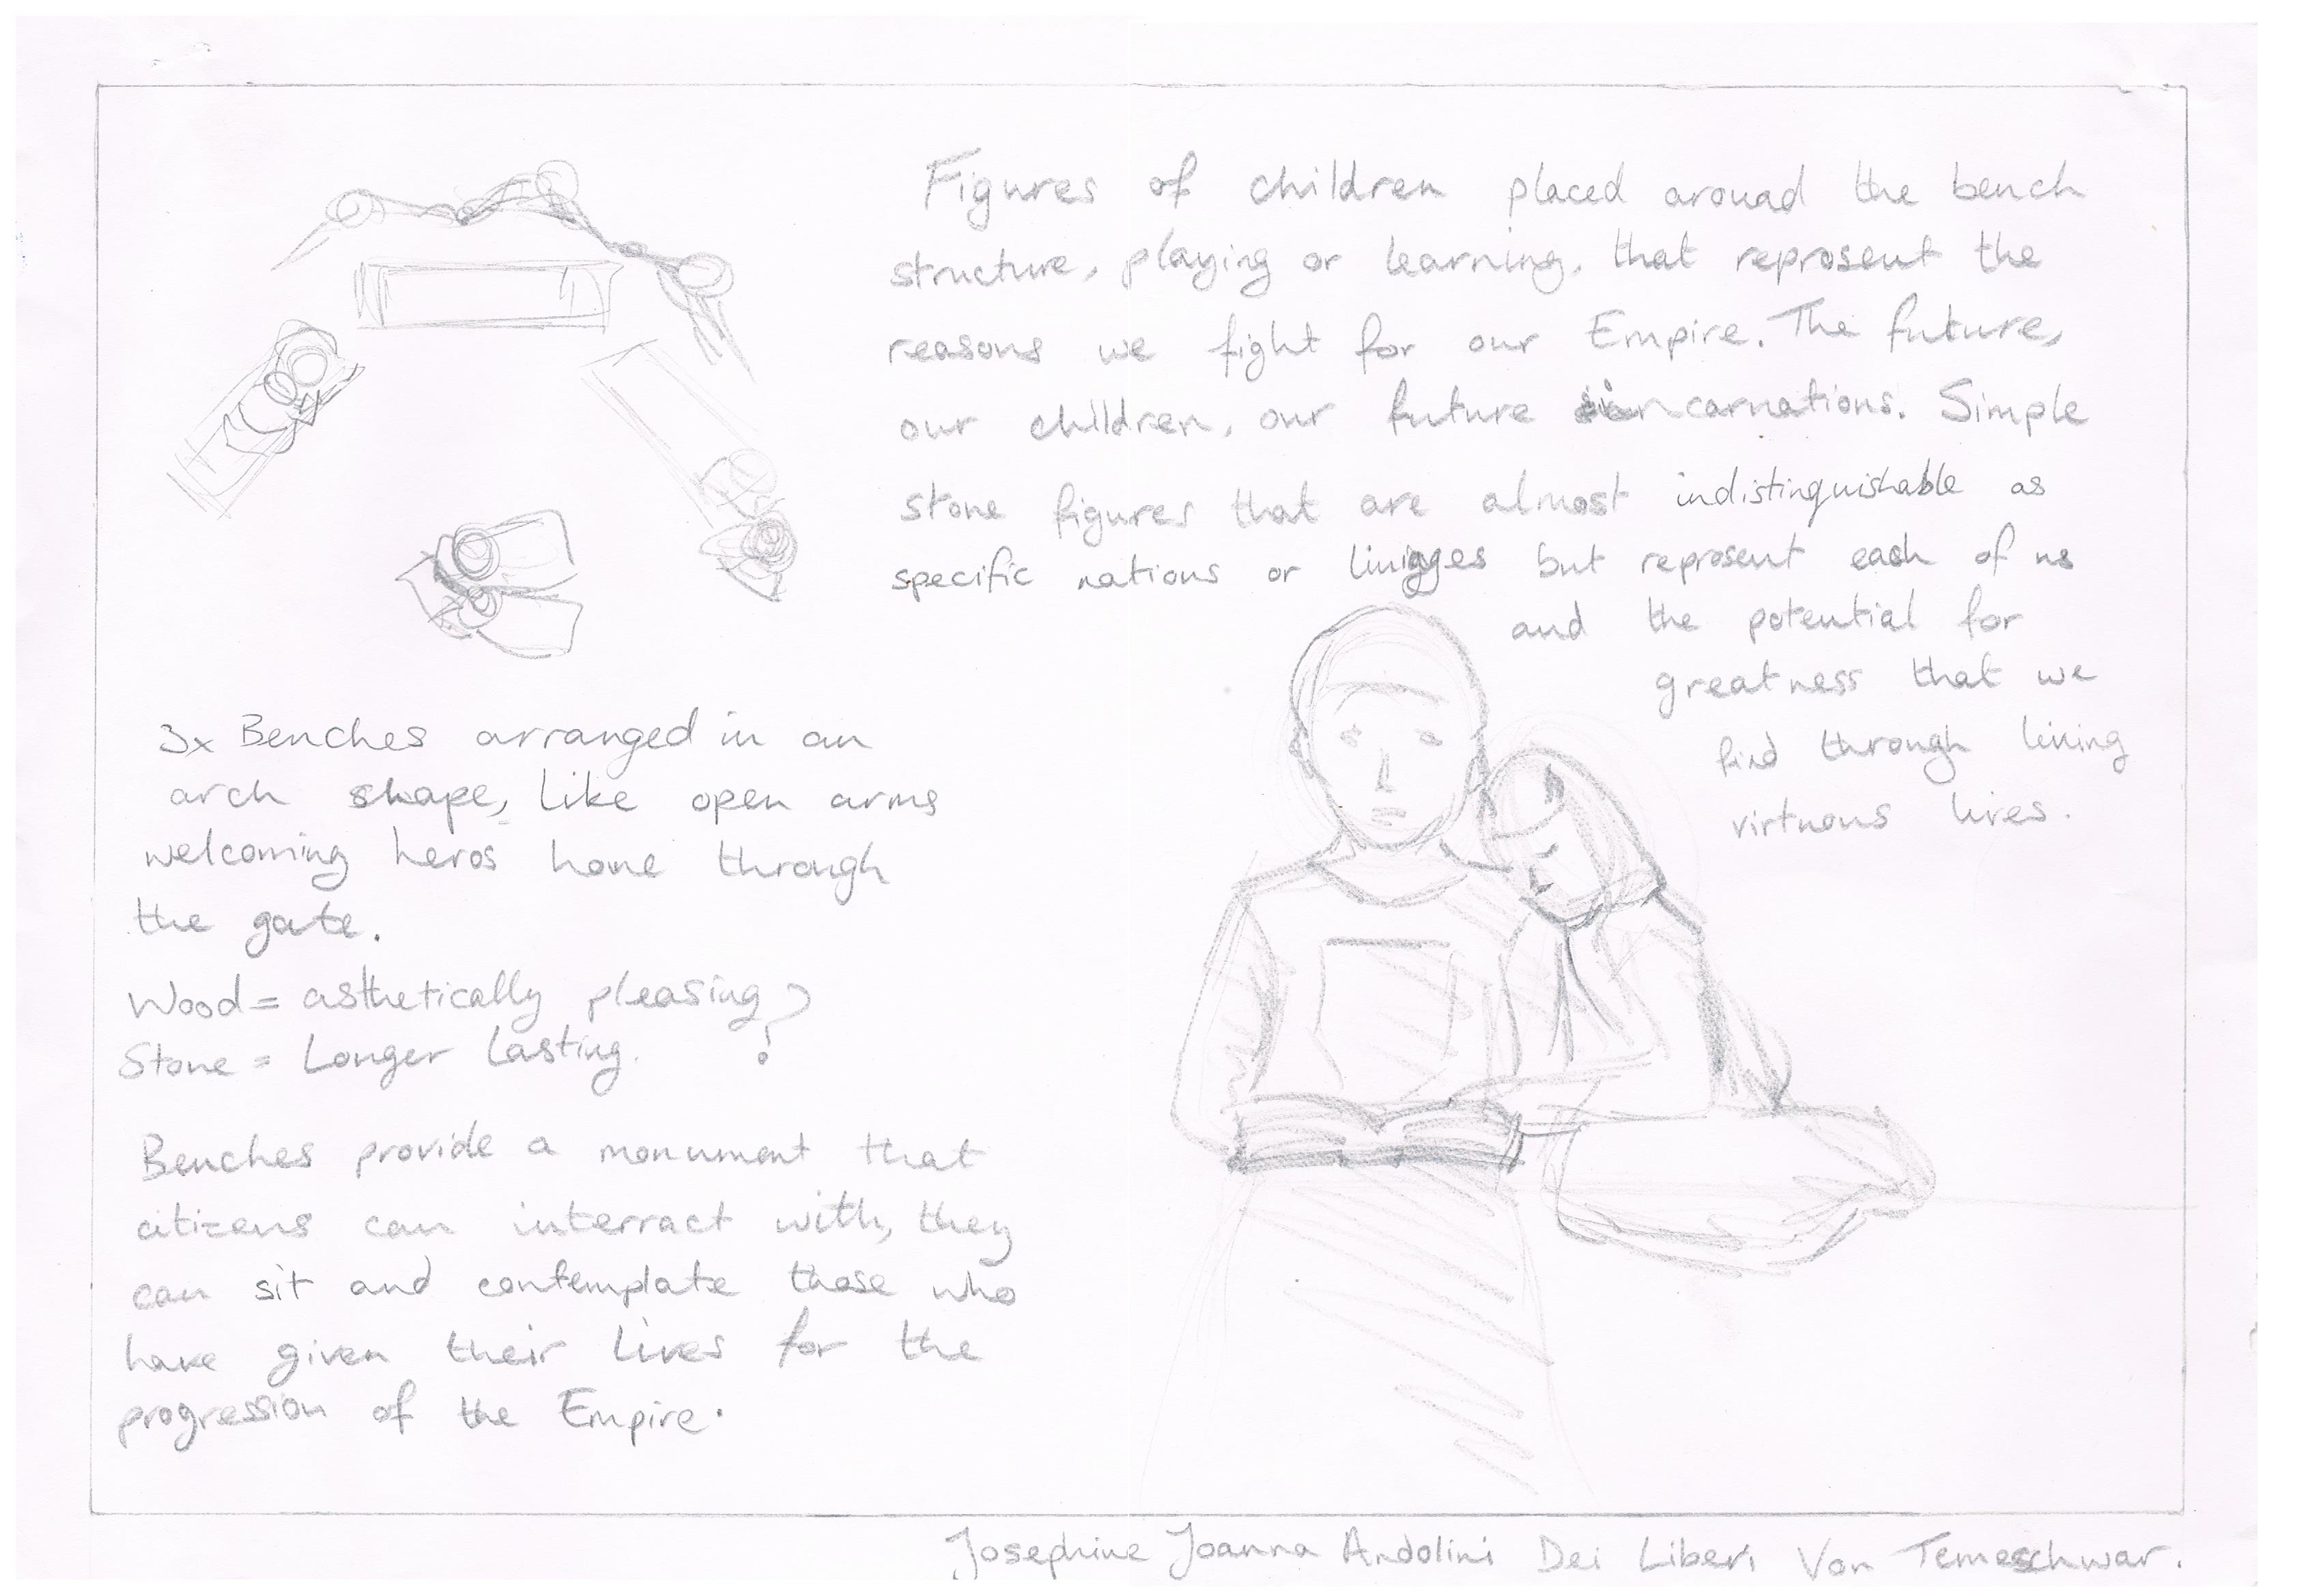 Figures of children placed around the bench
structure, playing or learning, that represent the
reasons we fight for our Empire. The future,
our children, our future incarnations. Simple
stone figures that are almost indistinguishable as
specific nations or but represent each of us
and the potential for
greatness that we
find through living
virtuous lives.
3x Benches arranged in an
arch shape, like open arms
welcoming heros home through
the gate.
Wood = asthetically pleasing ?
Stone = Longer lasting. ?
Benches provide a monument that
citizens can interract with, they
can sit and contemplate those who
have given their lives for the
progression of the Empire.
Josephine Joanna Andolini Dei Liberi Von Temeschwar.